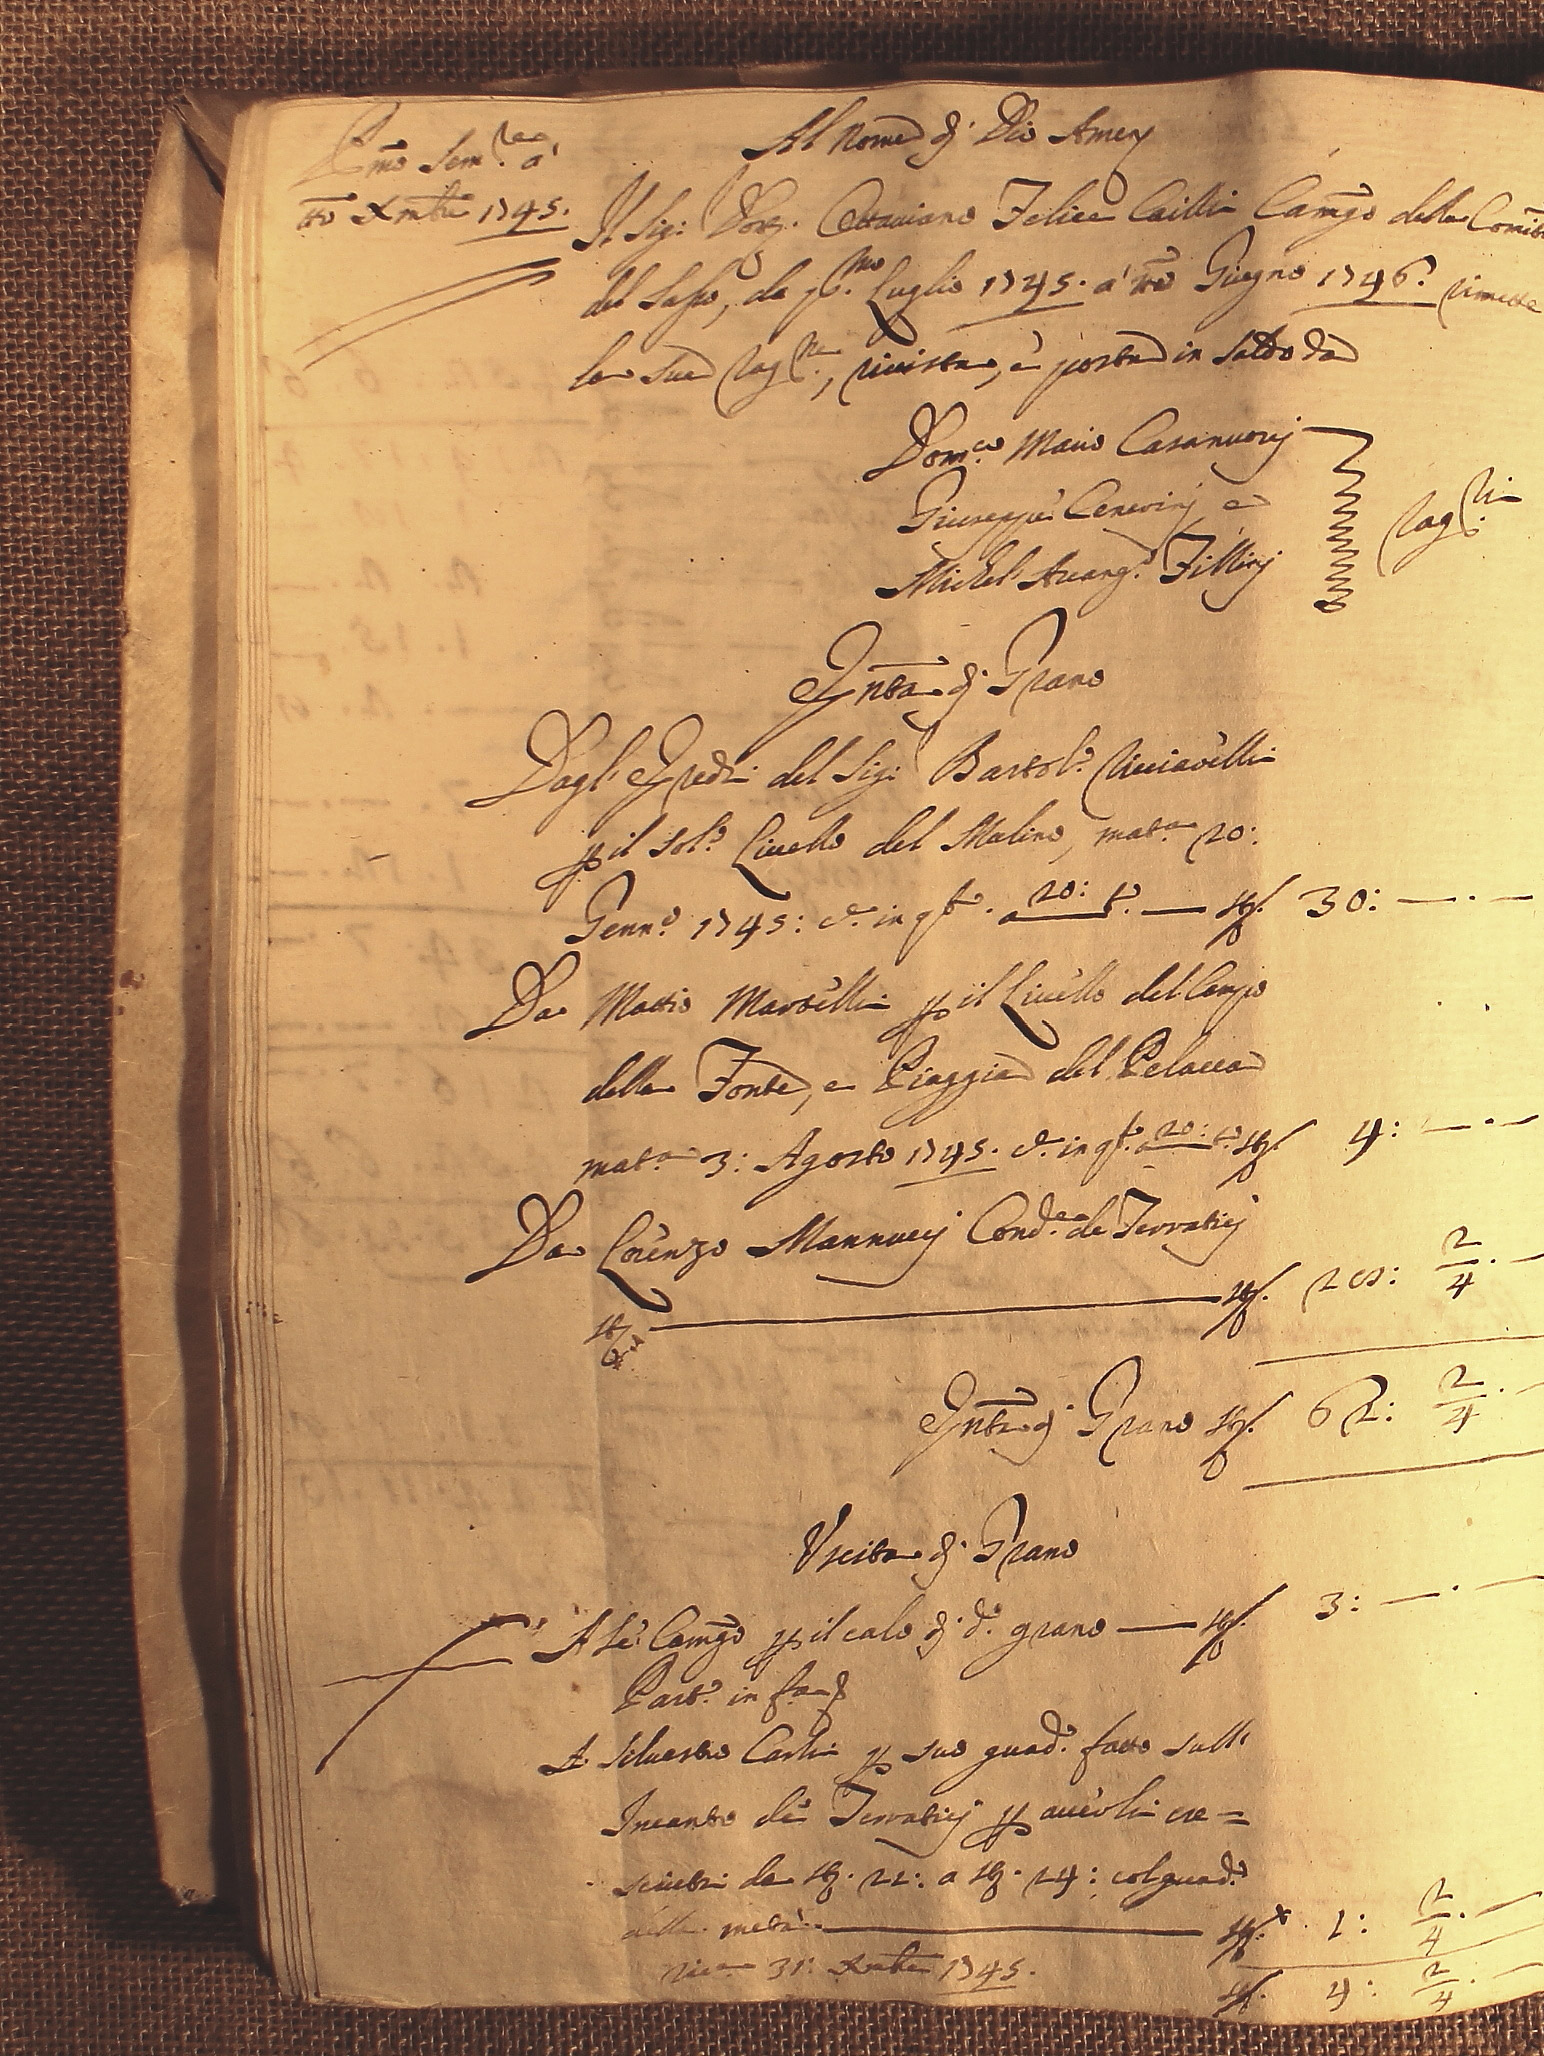 Pmo Sem.re a
tto Xmbre 1745.
Al Nome di Dio Amen
Il Sig: Dott. Ottaviano Felice Cailli Camgo della Comità
del Sasso, da p.mo Luglio 1745. a tto Giugno 1746. rimette
la sua rag.ne, rivista, e posta in saldo da
Dom.co Mario Casanuovj
Giuseppe Cenerinj e
Michel Arcang.o Fillinj
rag.ri
Entta di Grano
Dagl' Eredi del Sig: Bartol.o Ricciarelli
p il sol.o Livello del Mulino, mat.a 20:
Genn.o 1745: 20: t. 30:
Da Mattio Martelli p il Livello del Campo
della Fonte, e Piaggia del Pelacca
mat.a 3: Agosto 1745. 20: t. 4:
Da Lorenzo Mannucj Cond.e de Terraticj
28: 2/4
Entta di Grano 62: 2/4
Uscita di Grano
A Sé Camgo p il calo di d.o grano 3:
Part.o in
A Silvestro Carli p suo guad.o fatto sull'
Incanto de' Terraticj p averli cre=
sciuti da 21: a 24: col guad.o
della metà. 1: 2/4
31: Xmbre 1745.
4: 2/4